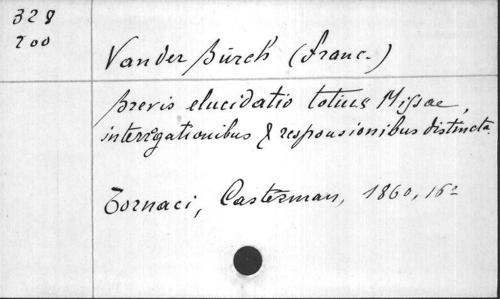 328
200
Vander Bürch (Franc.)
Brevis elucidatio totius Missae,
interrgationibus & responsionibus distincta.
Tornaci, Casterman, 1860, 16º